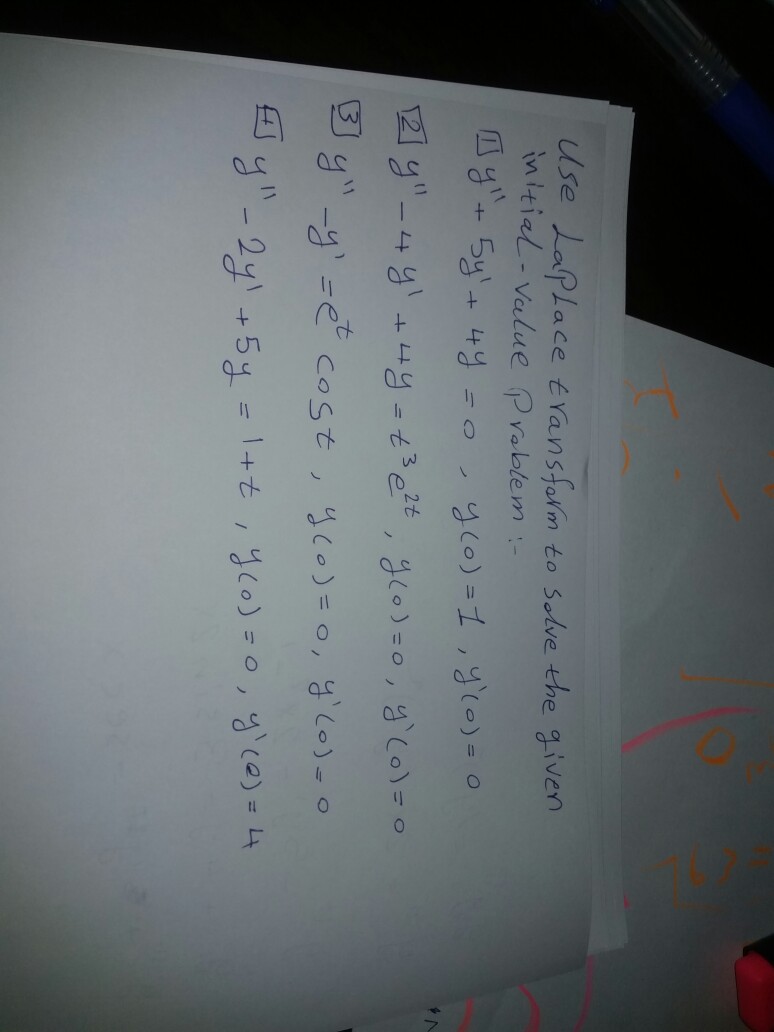 Use Laplace transform to solve the given
initial-value Problem :-
1 y'' + 5y' + 4y = 0 , y(0) = 1 , y'(0) = 0
2 y'' - 4y' + 4y = t³e²ᵗ , y(0) = 0 , y'(0) = 0
3 y'' - y' = eᵗ cost , y(0) = 0 , y'(0) = 0
4 y'' - 2y' + 5y = 1+t , y(0) = 0 , y'(0) = 4